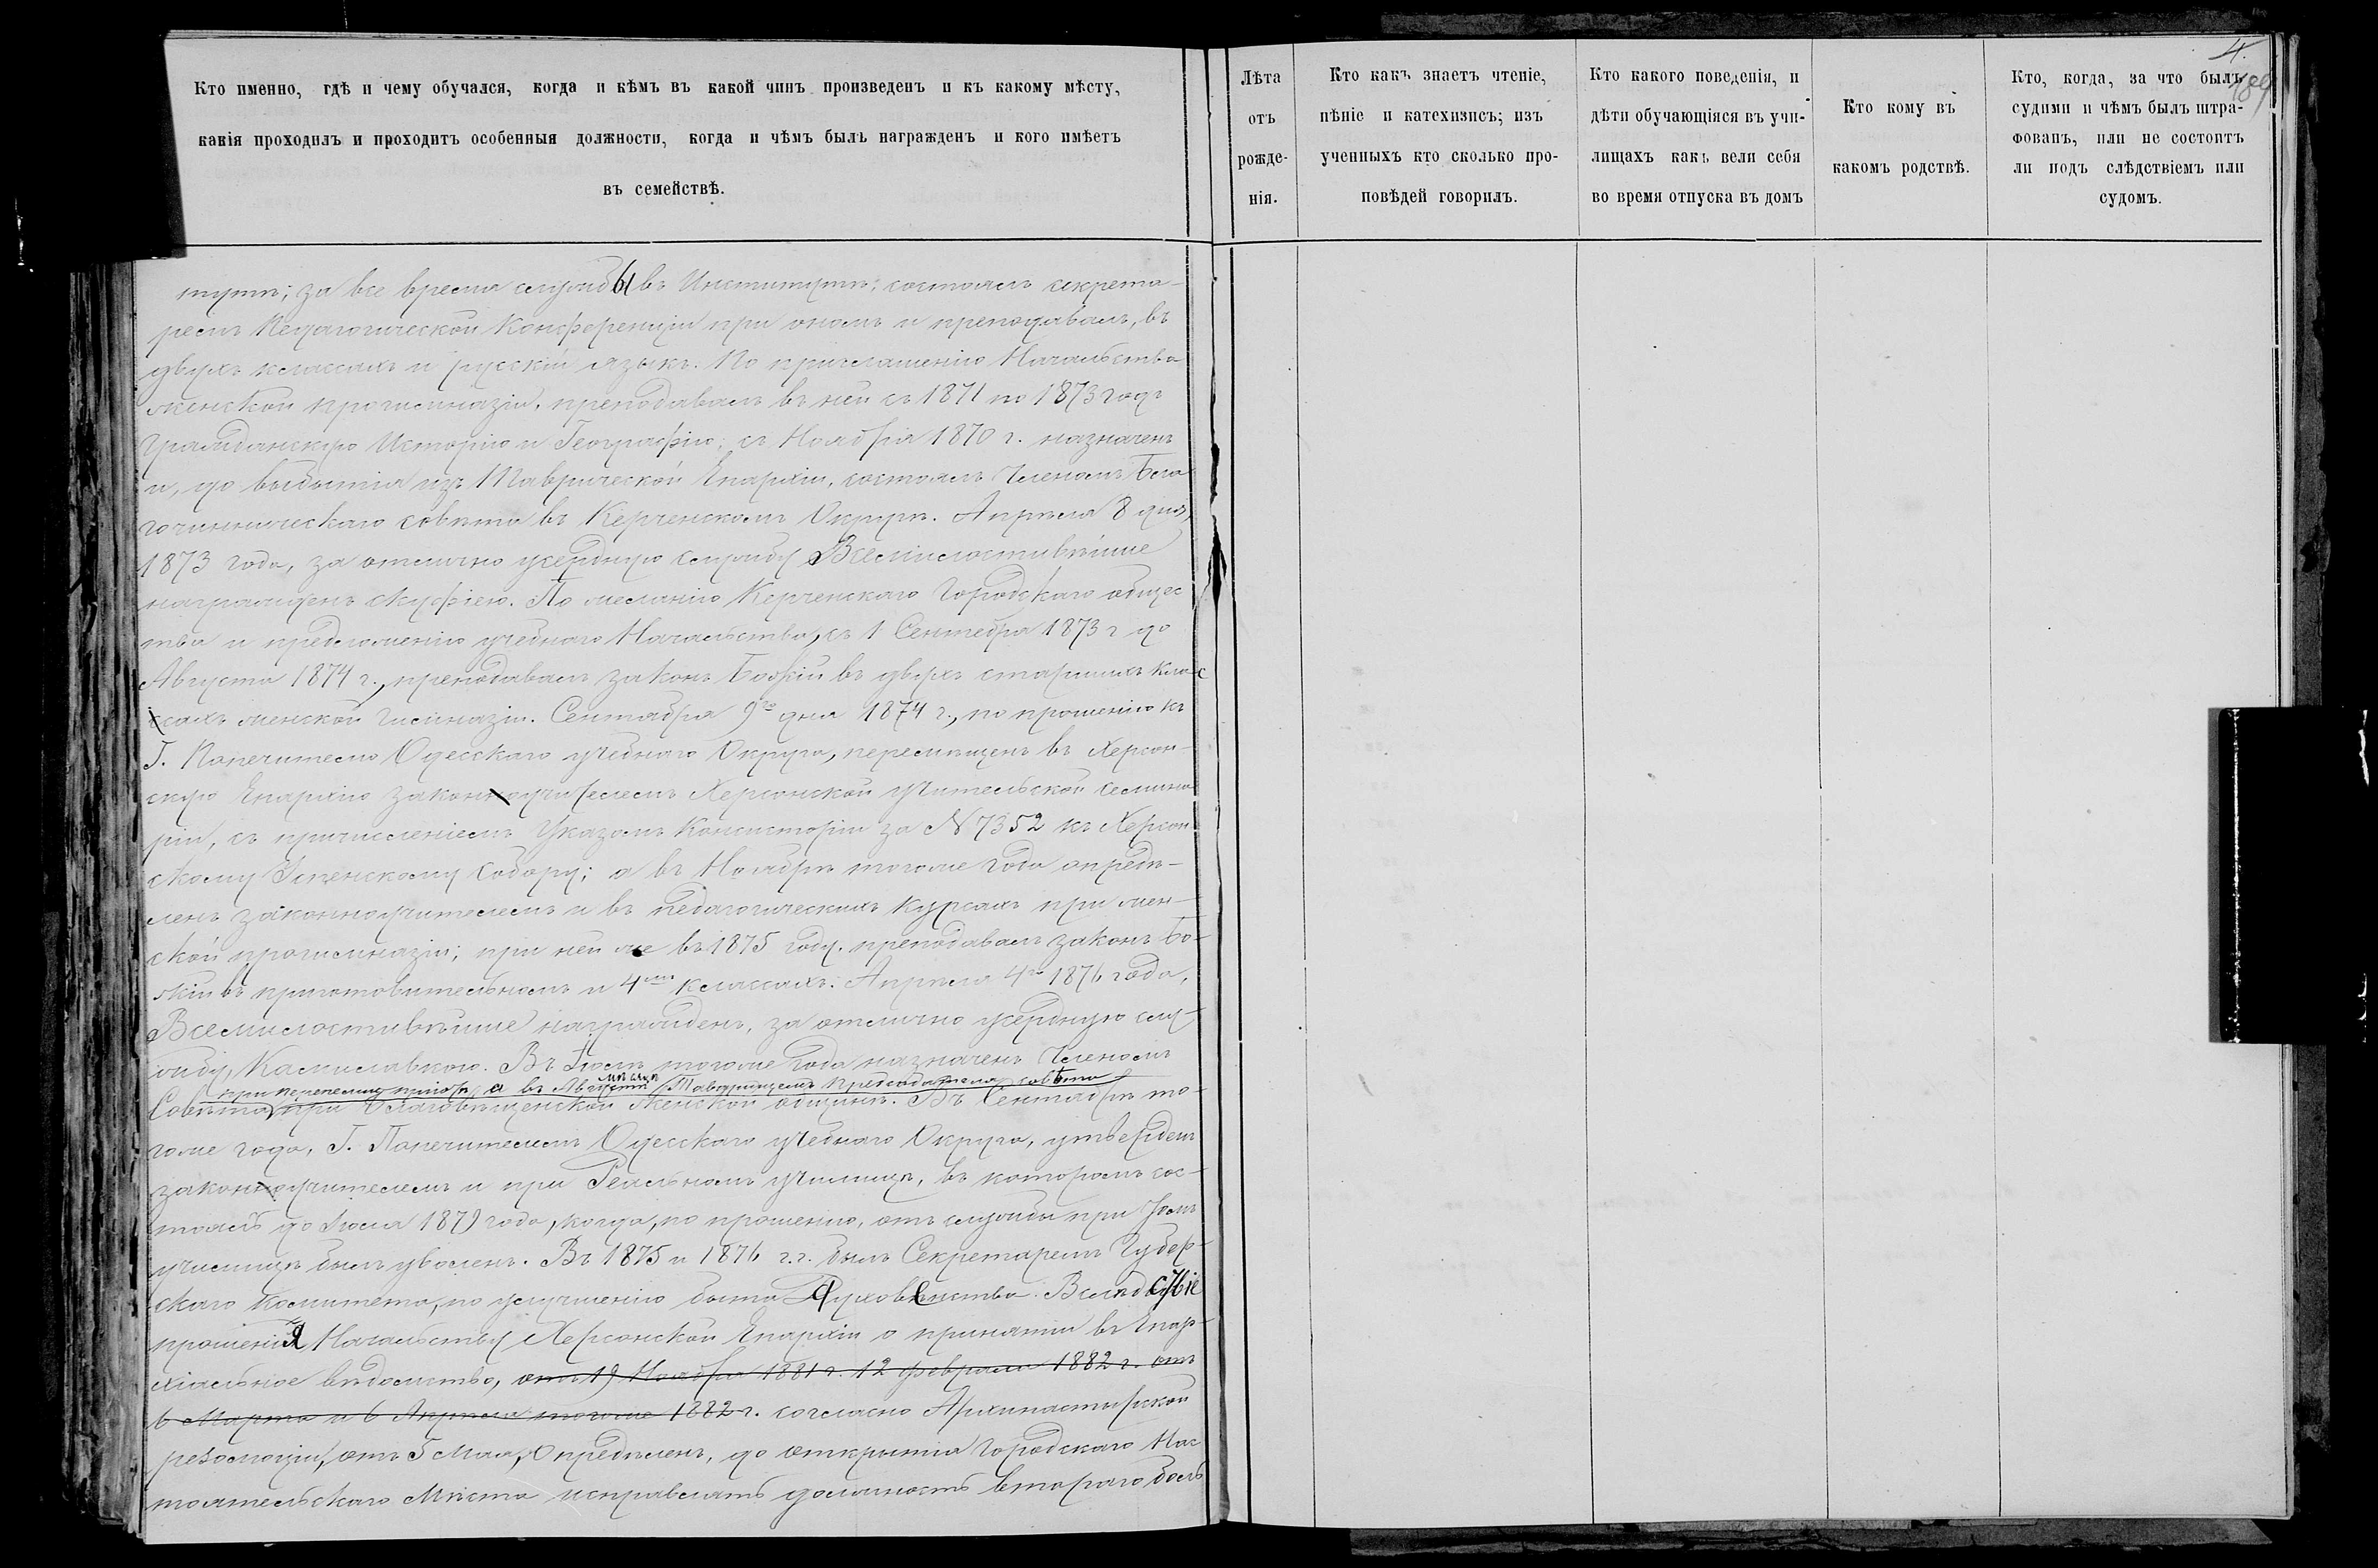 Кто именно, гдѣ и чему обучался, когда и кѣмъ въ какой чинъ произведенъ и къ какому мѣсту,
какія проходилъ и проходитъ особенныя должности, когда и чѣмъ былъ награжденъ и кого имѣетъ
въ семействѣ.
Лѣта
отъ
рожде-
нія.
Кто какъ знаетъ чтеніе,
пѣніе и катехизисъ; изъ
ученныхъ кто сколько про-
повѣдей говорилъ.
Кто какого поведенія, и
дѣти обучающіяся въ учи-
лищахъ какъ вели себя
во время отпуска въ домъ
Кто кому въ
какомъ родствѣ.
4.
189
Кто, когда, за что былъ
судими и чѣмъ былъ штра-
фованъ, или не состоитъ
ли подъ слѣдствіемъ или
судомъ.
тутѣ; за все время службы въ Институтѣ; состоялъ секрета-
ремъ Педагогической Конференціи при ономъ и преподавалъ, въ
двухъ классахъ и русскій языкъ. По приглашенію Начальства
женской прогимназіи, преподавалъ въ ней съ 1871 по 1873 годъ
Гражданскую Исторію и Географію; съ Ноября 1870 г. назначенъ
и, до выбытія изъ Таврической Епархіи, состоялъ Членомъ Бла
гочинническаго совѣта въ Керченскомъ Округѣ. Апрѣля 8 дня,
1873 года, за отлично усердную службу Всемилостивѣйше
награжденъ скуфіею. По желанію Керченскаго Городскаго общес
тва и предложенію учебнаго Начальства, съ 1 Сентября 1873 г до
Августа 1874 г., преподавалъ законъ Божій въ двухъ старшихъ клас
сахъ женской гимназіи. Сентября 9го дня 1874 г., по прошенію къ
Г. Попечителю Одесскаго учебнаго Округа, перемѣщенъ въ Херсон-
скую Епархію законоучителемъ Херсонской учительской семина
ріи, съ причисленіемъ Указомъ Консисторіи за N 7352 къ Херсон
скому Успенскому Собору; а въ Ноябрѣ тогоже года опредѣ-
ленъ законноучителемъ и въ педагогическихъ курсахъ при жен-
ской прогимназіи; при ней же въ 1875 году. преподавалъ законъ Бо-
жій въ приготовительномъ и 4мъ классахъ. Апрѣля 4го 1876 года,
Всемилостивѣйше награжденъ, за отлично усердную слу-
жбу, Камилавкою. Въ Іюлѣ тогоже года назначенъ Членомъ
а въ Августѣ мѣсяцѣ Товарищемъ предсѣдателя совѣта
Совѣта при Благовѣщенской женской общинѣ. Въ Сентябрѣ то-
гоже года, Г. Попечителемъ Одесскаго учебнаго Округа, утвержденъ
законоучителемъ и при Реальномъ училищѣ, въ которомъ сос-
тоялъ до Іюля 1879 года, когда, по прошенію, отъ службы при семъ
училищѣ былъ уволенъ. Въ 1875 и 1876 г.г. былъ Секретаремъ Губер-
скаго комитета, по улучшенію быта Духовенства. Вслѣдствіе
прошенія Начальству Херсонской Епархіи о принятіи въ Епар-
хіальное вѣдомство, отъ 19 Ноября 1881 г. 12 февраля 1882 г. отъ
6 Марта и 6 Апрѣля тогоже 1882 г. согласно Архипастырской
резолюціи, отъ 5 Мая, Опредѣленъ, до открытія Городскаго Нас
тоятельскаго мѣста исправлять должность втораго